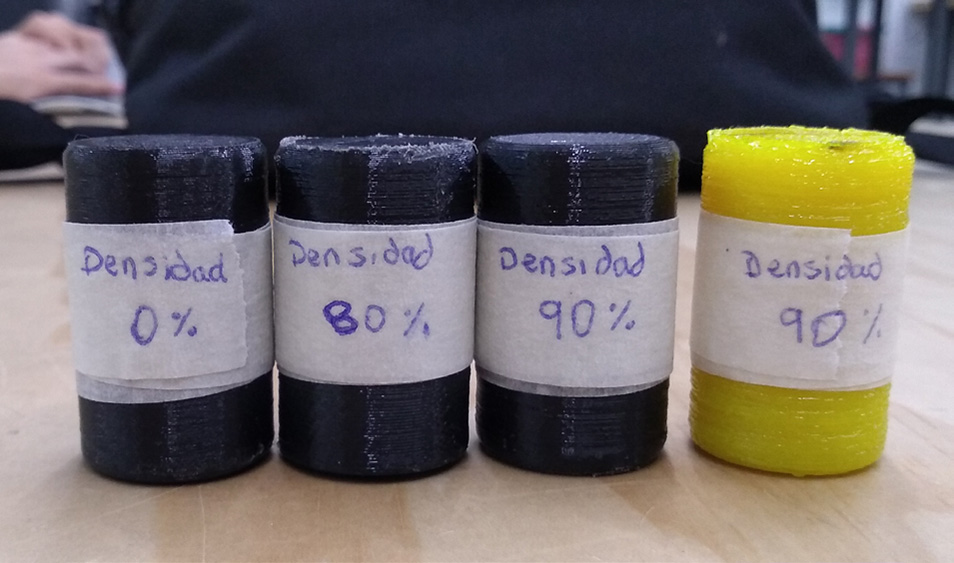 Densidad
0%
Densidad
80%
Densidad
90%
Densidad
90%